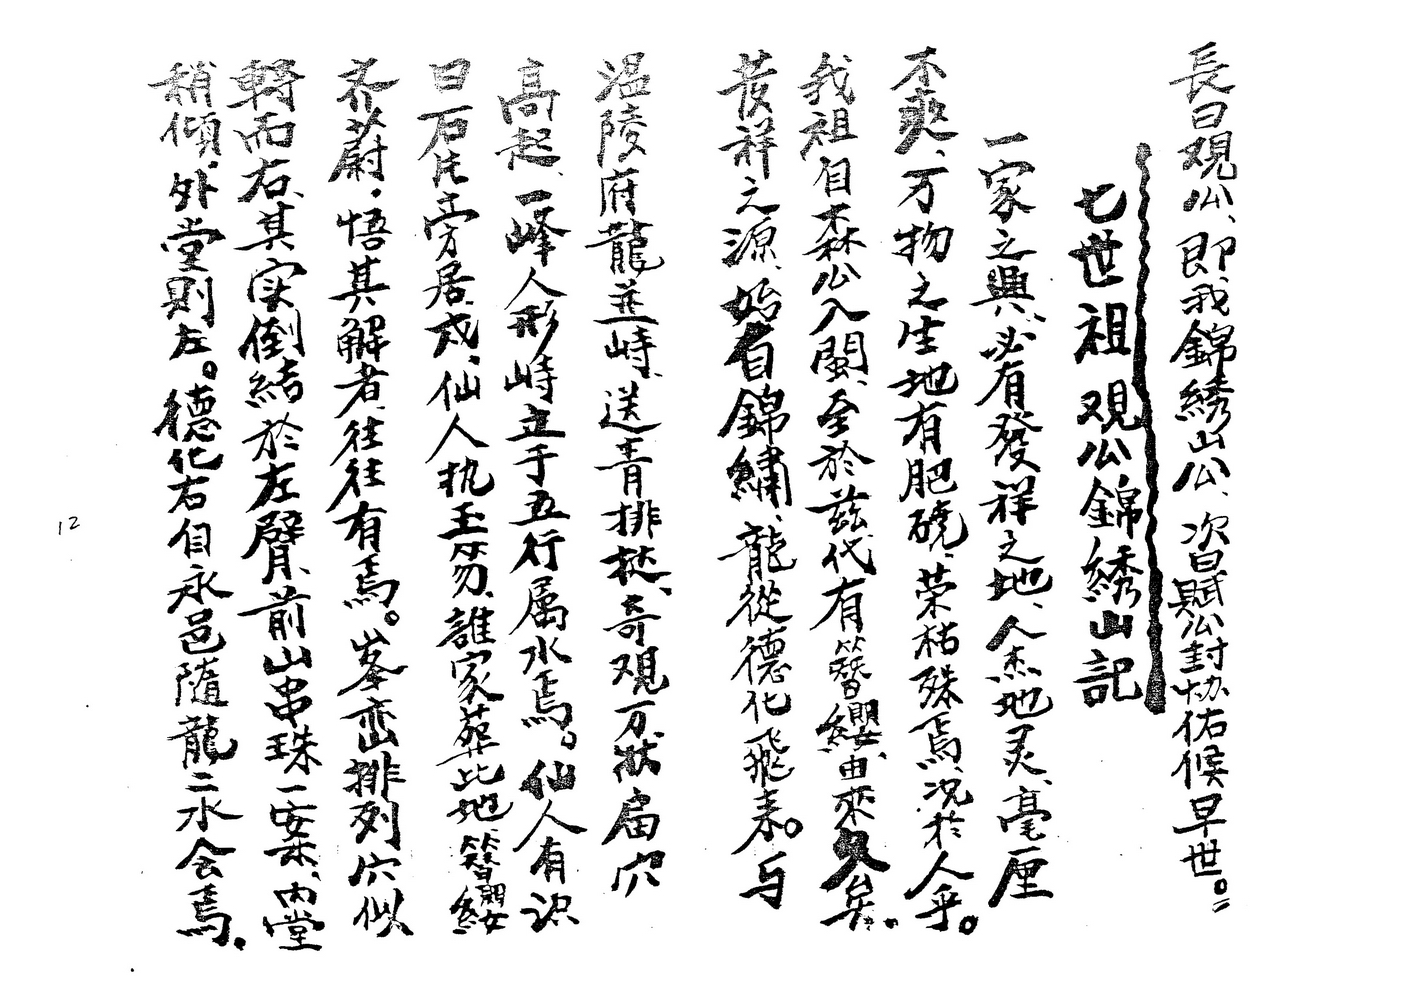 長曰观公、即我錦綉山公、次曰賦公封协佑候早世。
七世祖观公錦綉山記
一家之興、必有發祥之地、人杰地灵、毫厘
不爽、万物之生地有肥硗、荣枯殊焉、况於人乎。
我祖自森公入閩、至於茲代有簪纓、由來久矣。
发祥之源、始自錦繡、龍從德化飛来。与
温陵府龍並峙、送青排挞、奇观万状扁穴
高起、一峰人形峙立于五行属水焉。仙人有识
曰石氏旁居、戍、仙人执玉笏、誰家葬此地、簪纓
齐蔚、悟其解者、往往有焉。峯峦排列穴似
轉而右、其实倒結於左臂、前山串珠一安案、内堂
稍傾、外堂則左。德化右自永邑隨龍二水会焉、
12